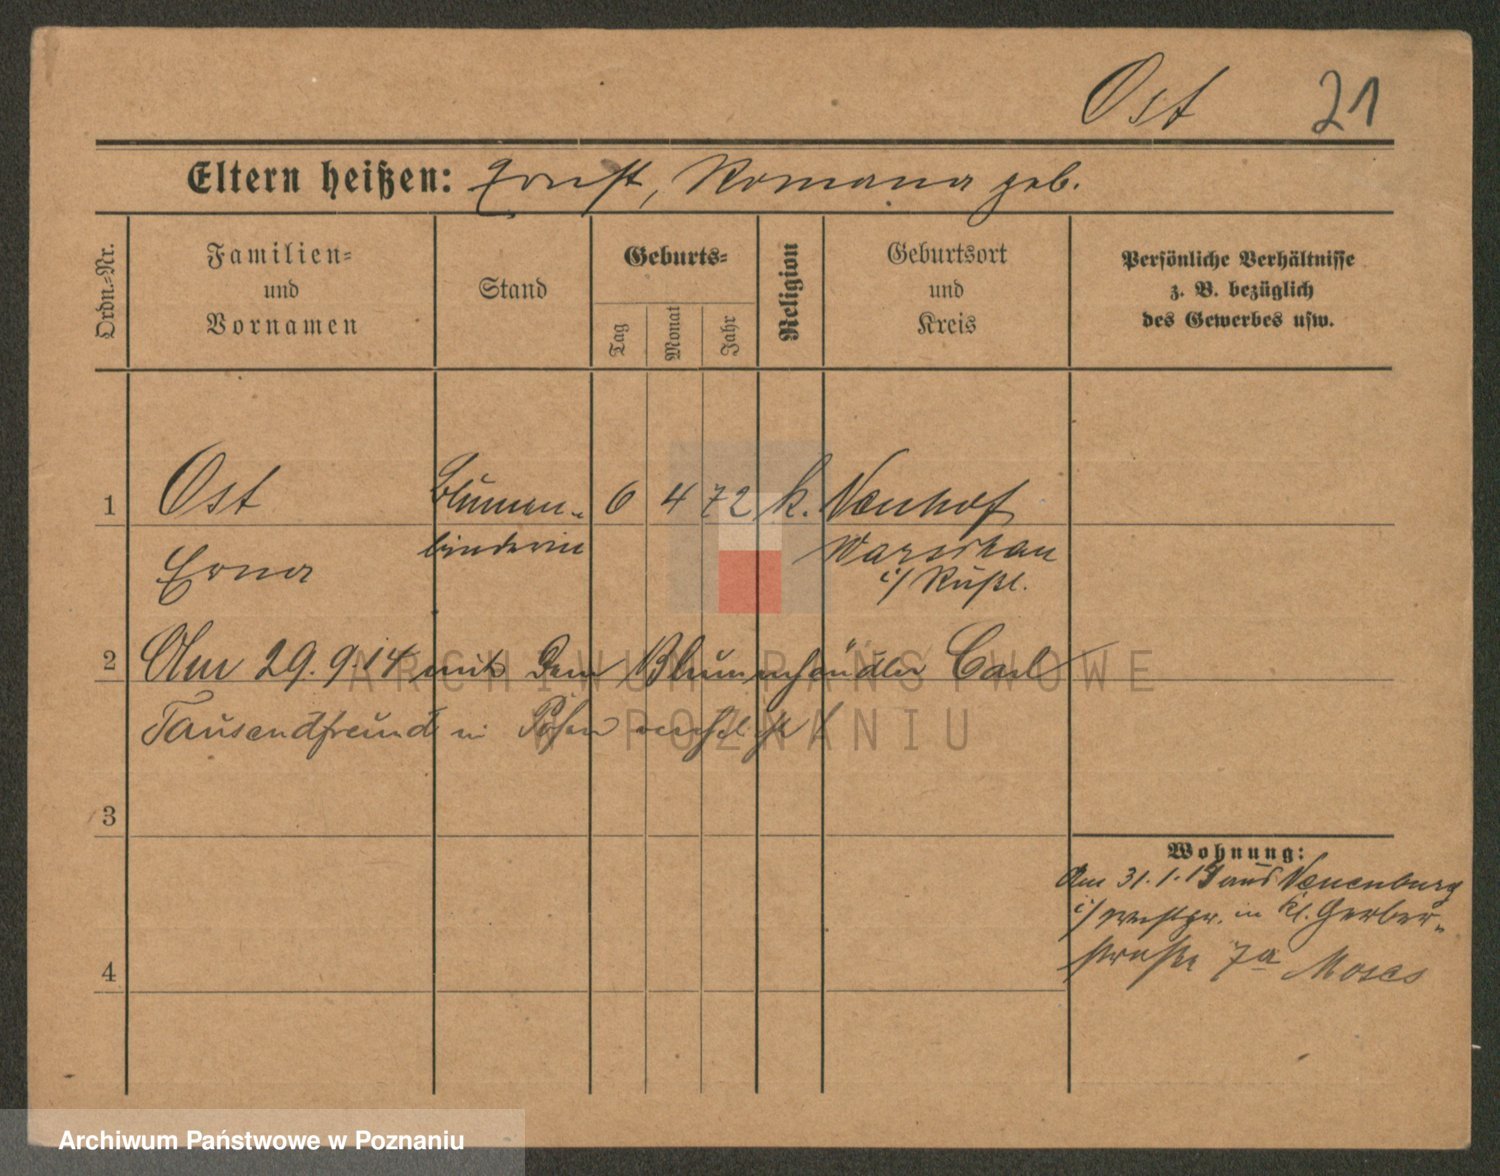 Ost 21
Eltern heißen: Ernst, Romana geb.
Ordn.-Nr.
Familien-
und
Vornamen
Stand
Geburts-
Tag
Monat
Jahr
Religion
Geburtsort
und
Kreis
Persönliche Verhältnisse
z. B. bezüglich
des Gewerbes usw.
1 Ost Blumen- 6 4 72 k. Neuhof
Erna binderin Warschau
i/ Rußl.
2 Am 29.9.14 mit dem Blumenhändler Carl
Tausendfreund in Posen verehelicht
3
Wohnung:
Am 31.1.14 aus Neuenburg
i/ Westpr. in Kl. Gerber-
straße 7a Moses
4
ARCHIWUM PAŃSTWOWE
W POZNANIU
Archiwum Państwowe w Poznaniu